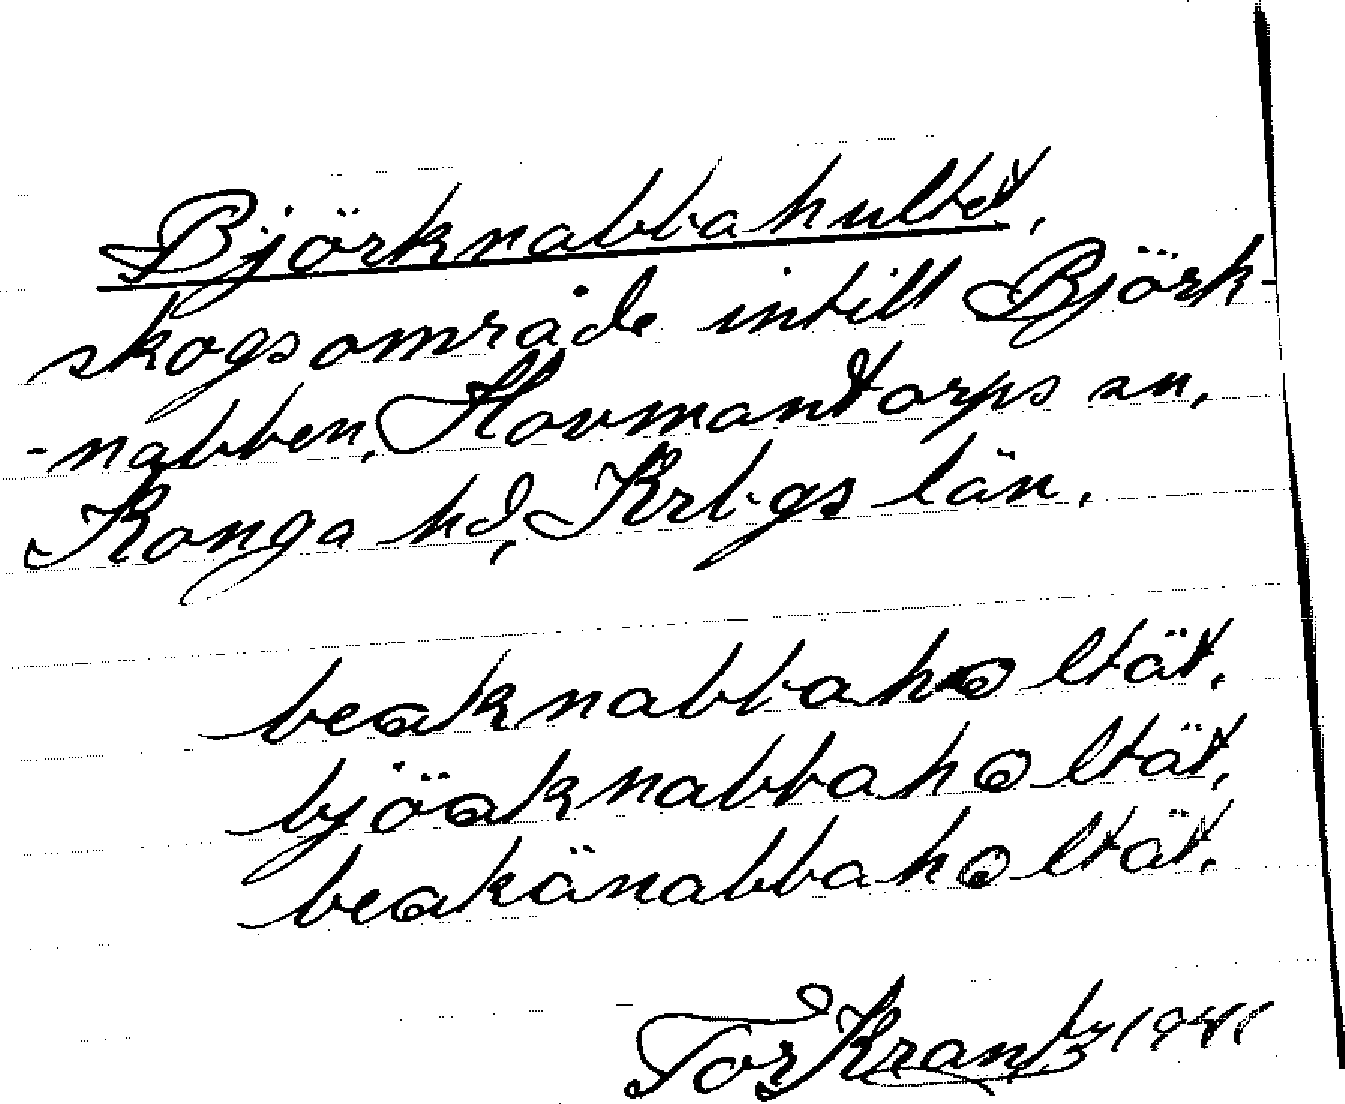 Björknabbahultet,
skogsområde intill Björk-
-nabben, Hovmantorps sn,
Konga hd, Krbgs län.
beaknabbahɵltät,
bjöaknabbahɵltät,
beakänabbahɵltät.
Tor Krantz 1941